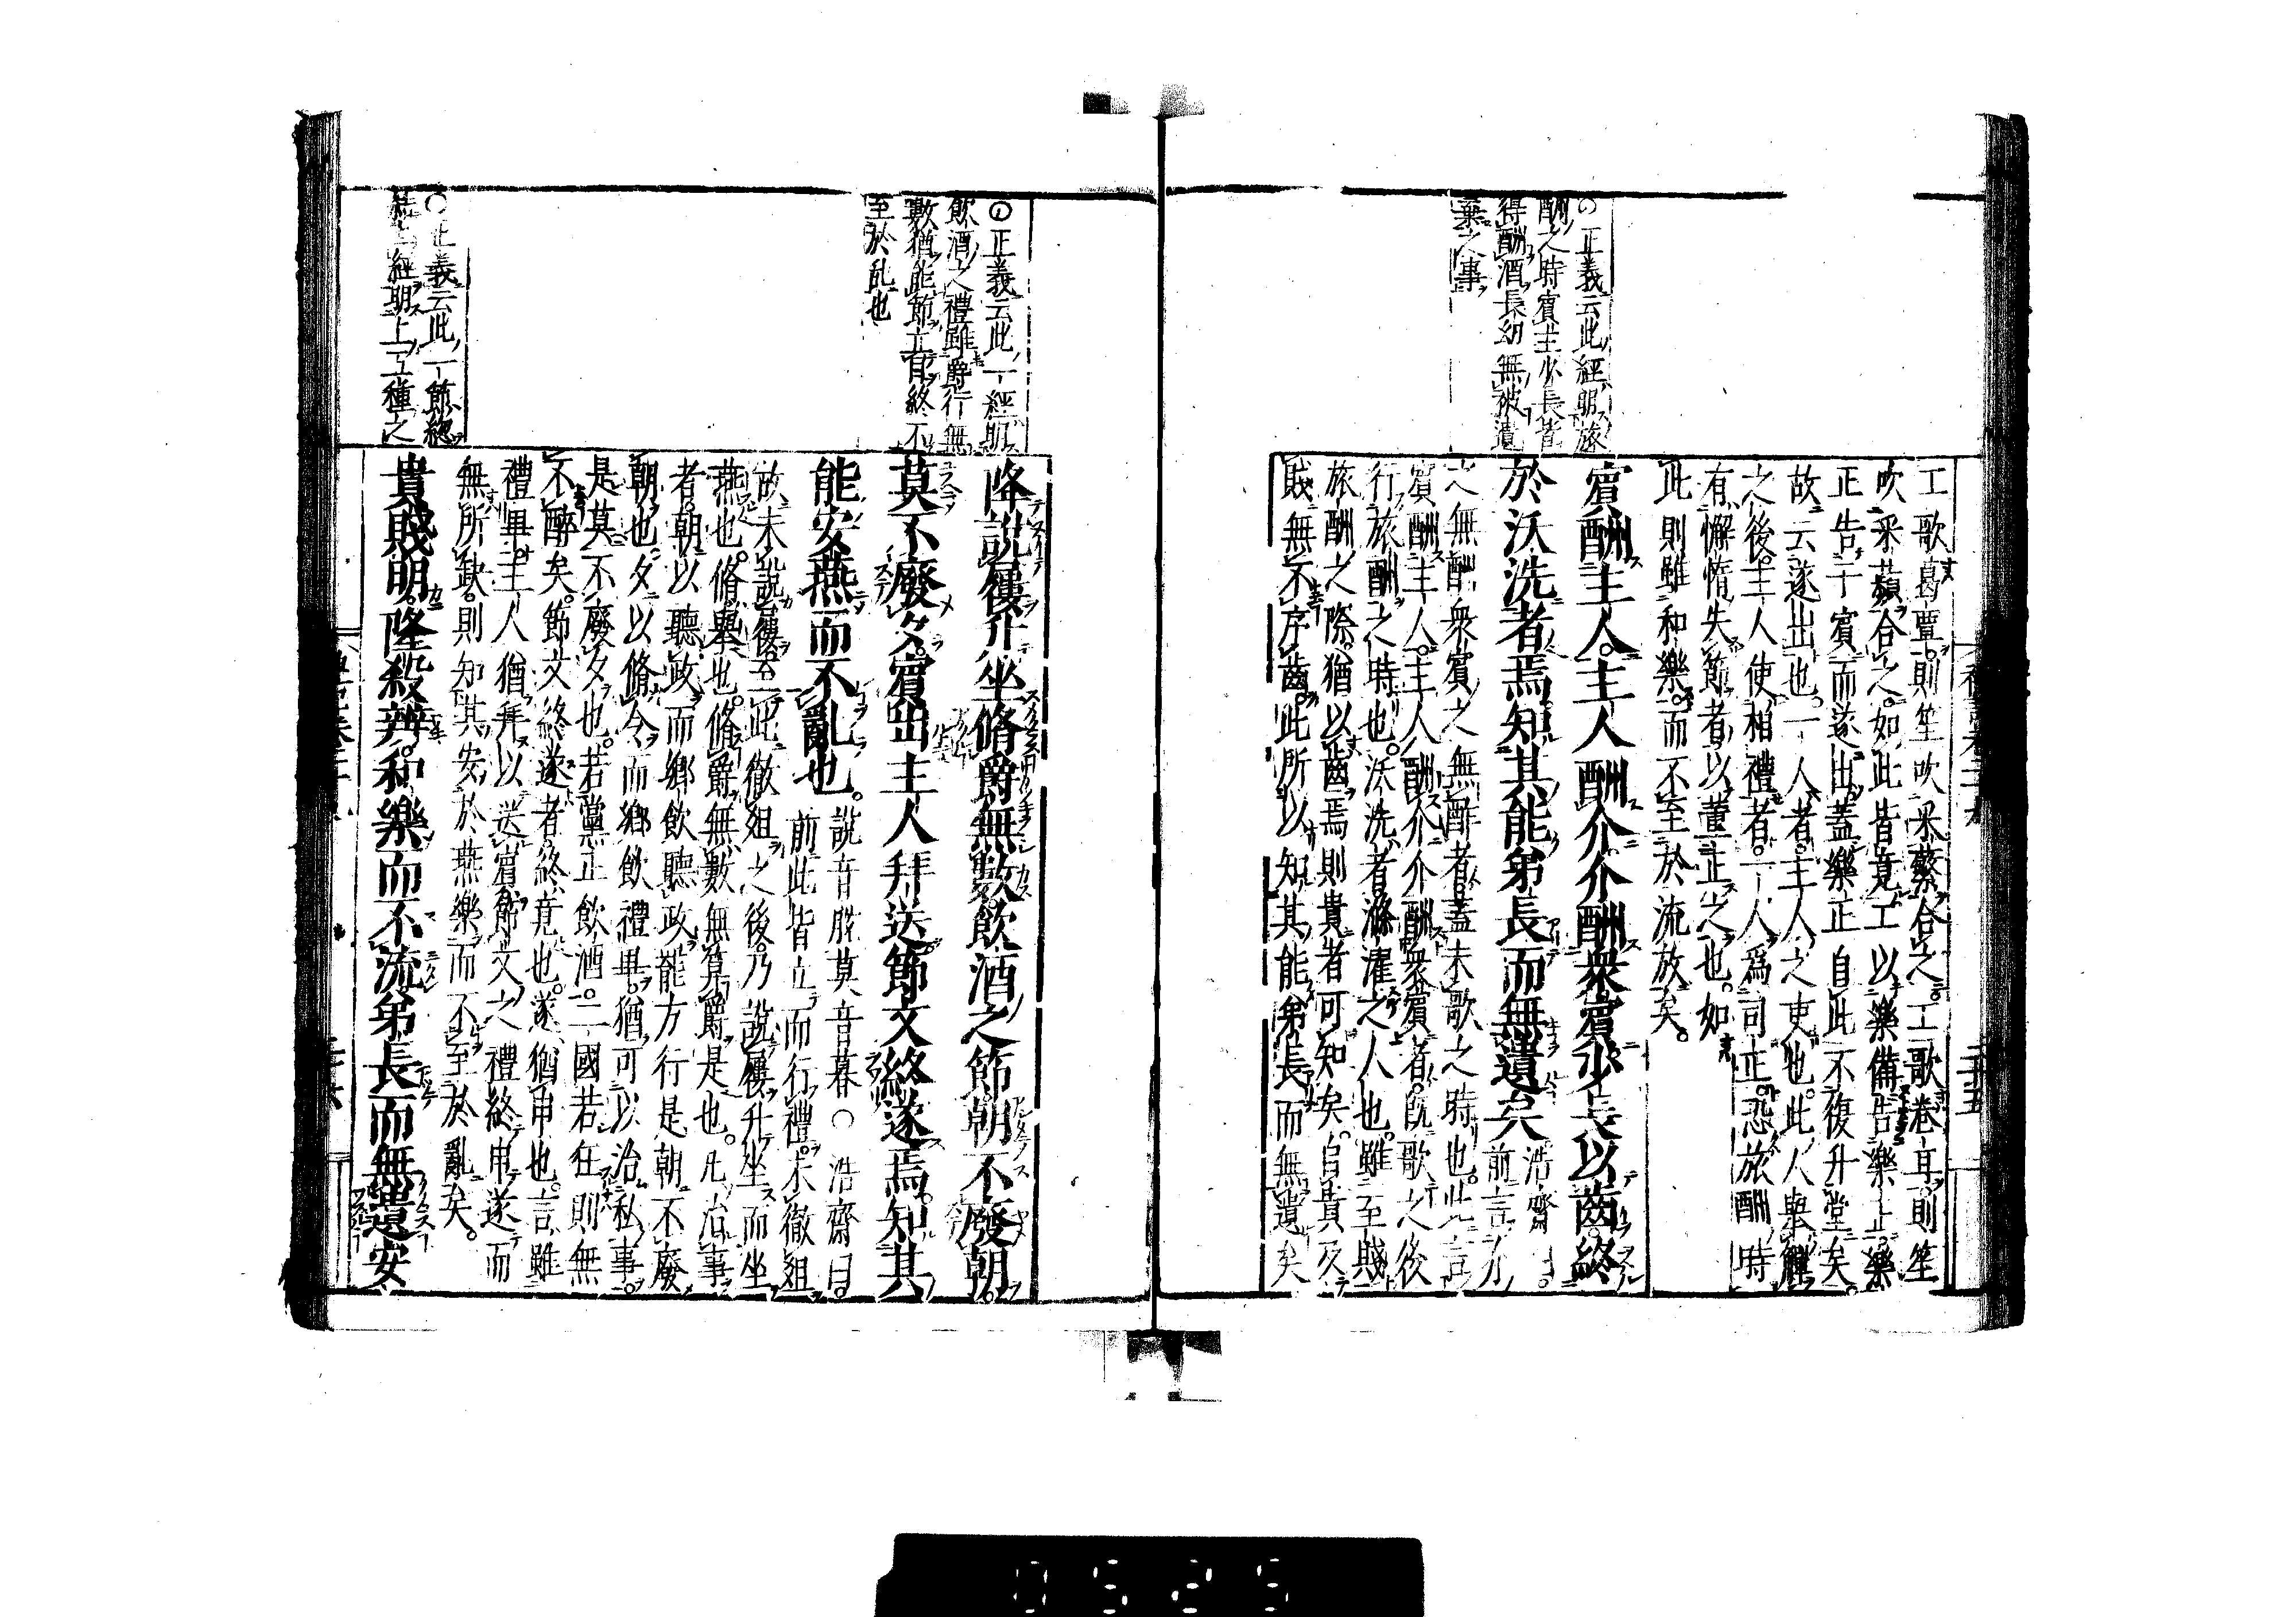 ○正義云此經明旅
酬之時賓主少長皆
得酬酒長幼無被遺
棄之事
工歌葛覃則笙吹采蘩合之工歌卷耳則笙
吹采蘋合之如此皆竟工以樂備告樂正樂
正告于賓而遂出蓋樂正自此不復升堂矣
故云遂出也一人者主人之吏也此人舉觶
之後主人使相禮者一人爲司正恐旅酬時
有懈惰失節者以董正之也如
此則雖和樂而不至於流放矣
賓酬主人主人酬介介酬衆賓少長以齒終
於沃洗者焉知其能弟長而無遺矣 浩齋曰前言介
之無酬衆賓之無酢者蓋未歌之時也此言
賓酬主人主人酬介介酬衆賓者旣歌之後
行旅酬之時也沃洗者滌濯之人也雖至賤
旅酬之際猶以齒焉則貴者可知矣自貴及
賤無不序齒此所以知其能弟長而無遺矣
二十五
○正義云此一經明
飲酒之禮雖爵行無
數猶能節文自終不
至於乱也
○正義云此一節總
結上經明上五種之
降說屨升坐脩爵無數飲酒之節朝不廢朝
莫不廢夕賓出主人拜送節文終遂焉知其
能安燕而不亂也 說音脫莫音暮○浩齋曰前此皆立而行禮未徹俎
故未說屨至此徹俎之後乃說屨升坐而坐
燕也脩舉也脩爵無數無筭爵是也凡治事
者朝以聽政而鄕飲聽政罷方行是朝不廢
朝也夕以脩令而鄕飲禮畢猶可以治私事
是莫不廢夕也若黨正飲酒一國若狂則無
不醉矣節文終遂者終竟也遂猶申也言雖
禮畢主人猶拜以送賓節文之禮終申遂而
無所缺則知其安於燕樂而不至於亂矣
貴賤明隆殺辨和樂而不流弟長而無遺安
0525